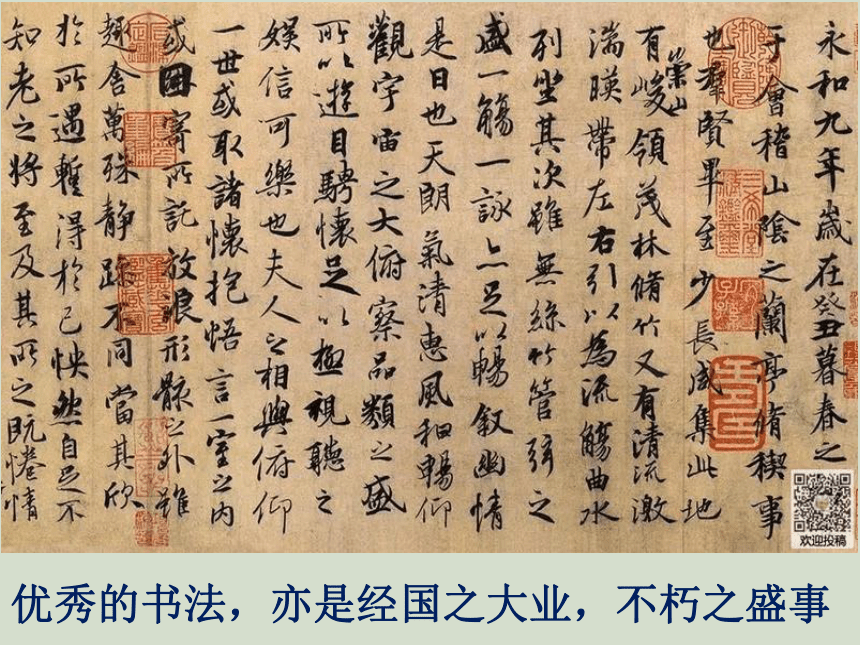 永和九年歲在癸丑暮春之
于會稽山陰之蘭亭脩稧事
也羣賢畢至少長咸集此地
有崇山峻領茂林脩竹又有清流激
湍暎帶左右引以為流觴曲水
列坐其次雖無絲竹管弦之
盛一觴一詠亦足以暢敘幽情
是日也天朗氣清惠風和暢仰
觀宇宙之大俯察品類之盛
所以遊目騁懷足以極視聽之
娛信可樂也夫人之相與俯仰
一世或取諸懷抱悟言一室之內
或因寄所託放浪形骸之外雖
趣舍萬殊靜躁不同當其欣
於所遇暫得於己怏然自足不
知老之將至及其所之既惓情
欢迎投稿
优秀的书法，亦是经国之大业，不朽之盛事